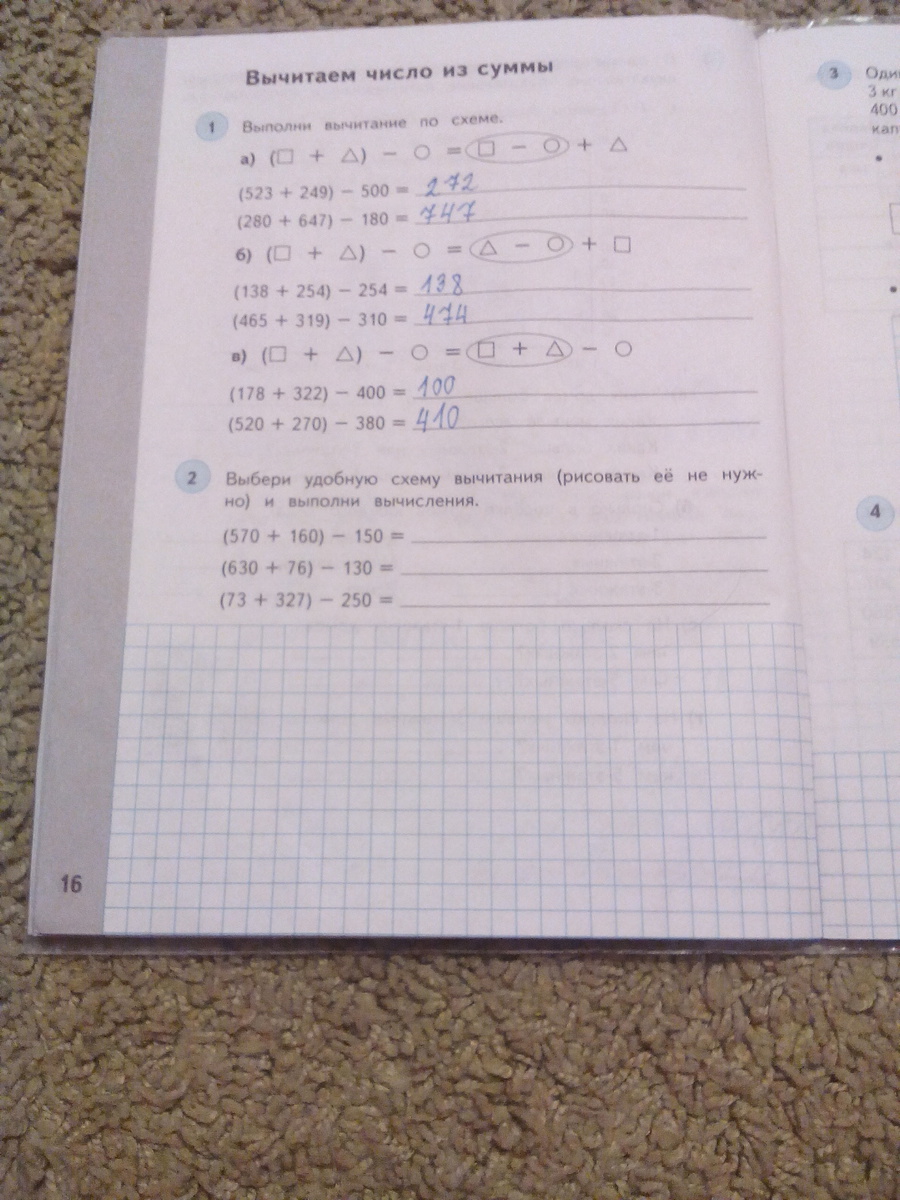 Вычитаем число из суммы
1 Выполни вычитание по схеме.
а) (□ + △) − ○ = □ − ○ + △
(523 + 249) − 500 = 272
(280 + 647) − 180 = 747
б) (□ + △) − ○ = △ − ○ + □
(138 + 254) − 254 = 138
(465 + 319) − 310 = 474
в) (□ + △) − ○ = □ + △ − ○
(178 + 322) − 400 = 100
(520 + 270) − 380 = 410
2 Выбери удобную схему вычитания (рисовать её не нуж-
но) и выполни вычисления.
(570 + 160) − 150 =
(630 + 76) − 130 =
(73 + 327) − 250 =
16
3
3 кг
400
4